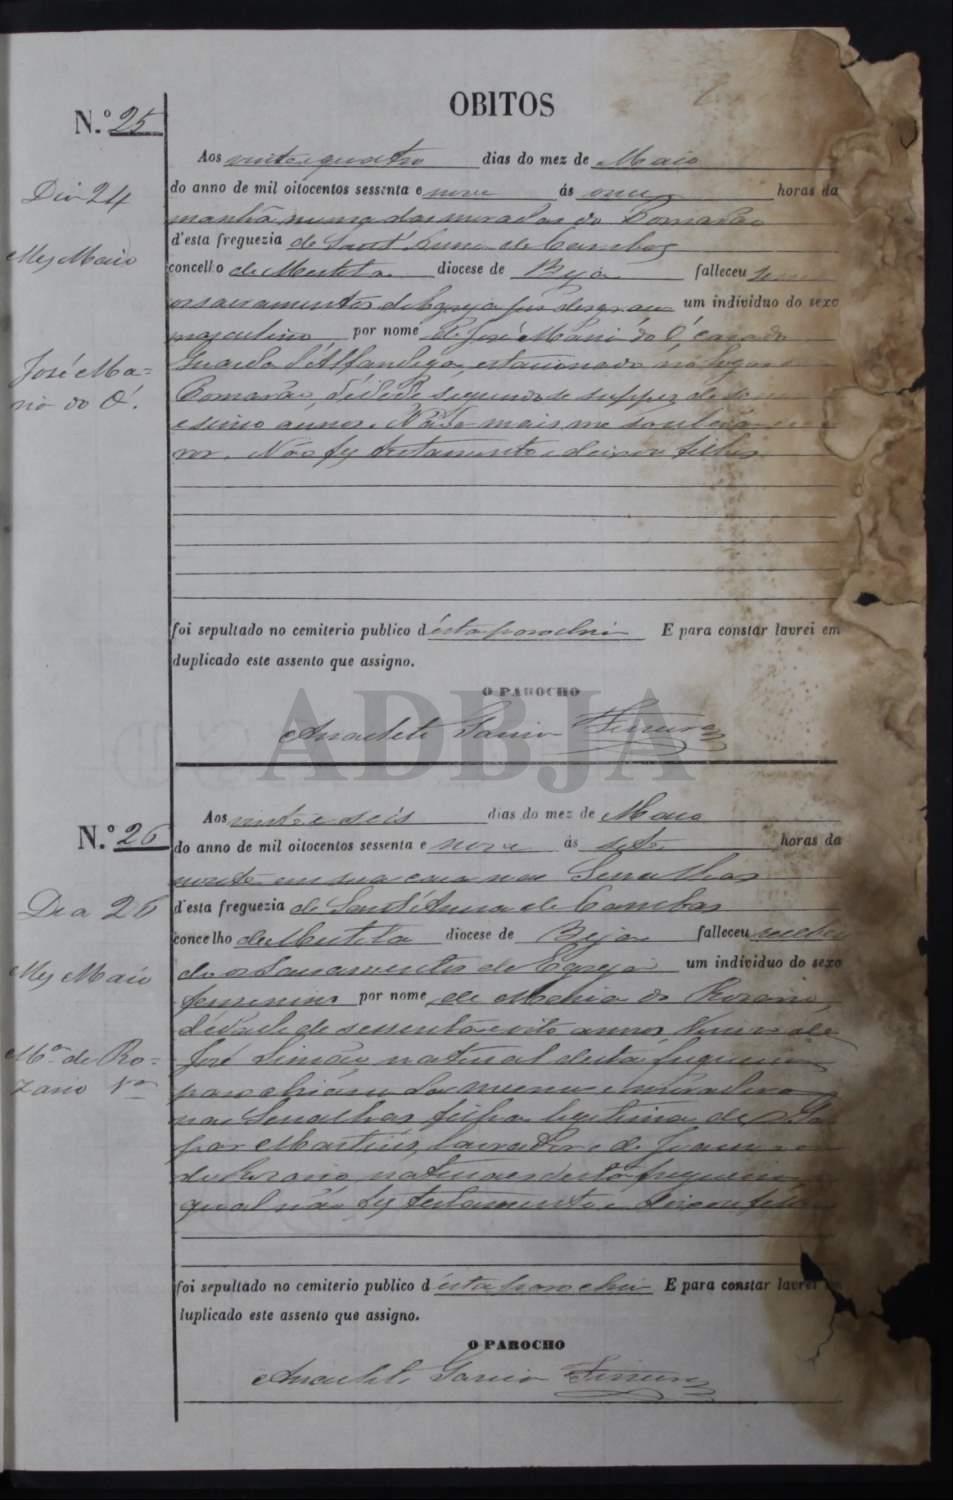 OBITOS
N.º 25
Dia 24
Mez Maio
José Ma=
rio do Ó.
Aos vinte quatro dias do mez de Maio
do anno de mil oitocentos sessenta e nove ás onze horas da
manhã numa das moradas do Pomarão
d'esta freguezia de Sant'Anna de Cambas
concelho de Mertola diocese de Beja falleceu sem
os sacramentos da Egreja um individuo do sexo
masculino por nome de José Mario do Ó, casado
Guarda d'Alfandega, estacionado no lugar
Pomarão, d'idade segundo se suppoz de
e sinco annos. Não mais me
ror. Não fez testamento e deixou filhos
foi sepultado no cemiterio publico d'esta parochia E para constar lavrei em
duplicado este assento que assigno.
O PAROCHO
Anacleto Garcia Ferreira
ADBJA
N.º 26
Dia 26
Mez Maio
M.ª do Ro=
zario V.ª
Aos vinte e seis dias do mez de Maio
do anno de mil oitocentos sessenta e nove ás sete horas da
noute em sua casa nas
d'esta freguezia de Sant'Anna de Cambas
concelho de Mertola diocese de Beja falleceu receben
do os Sacramentos da Egreja um individuo do sexo
femenino por nome de Maria do Rozario,
d'idade de sessenta e oito annos, Viuva de
José Simão, natural desta freguezia
parochiana da mesma e moradora
nas filha legitima de
par Martins, lavrador e de Joanna
do Rozario naturaes desta freguezia
qual não fez testamento e deixou filhos
foi sepultado no cemiterio publico d'esta parochia E para constar lavrei
duplicado este assento que assigno.
O PAROCHO
Anacleto Garcia Ferreira